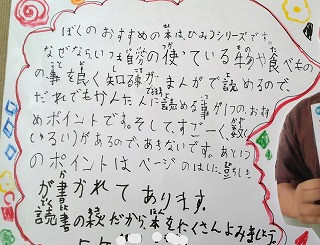 ぼくのおすすめの本はひみつシリーズです。
なぜならいつも自分の使っている物や食べもの
の事を良く知る事がまんがで読めるので、
だれでもかんたんに読める事が1つのおすす
めポイントです。そして、すごーく数(
しゅるい)があるので、あきないです。あと1つ
のポイントは、ページのはしに豆ちしき
が書かれてあります。
読書の秋だから本をたくさんよみましょう